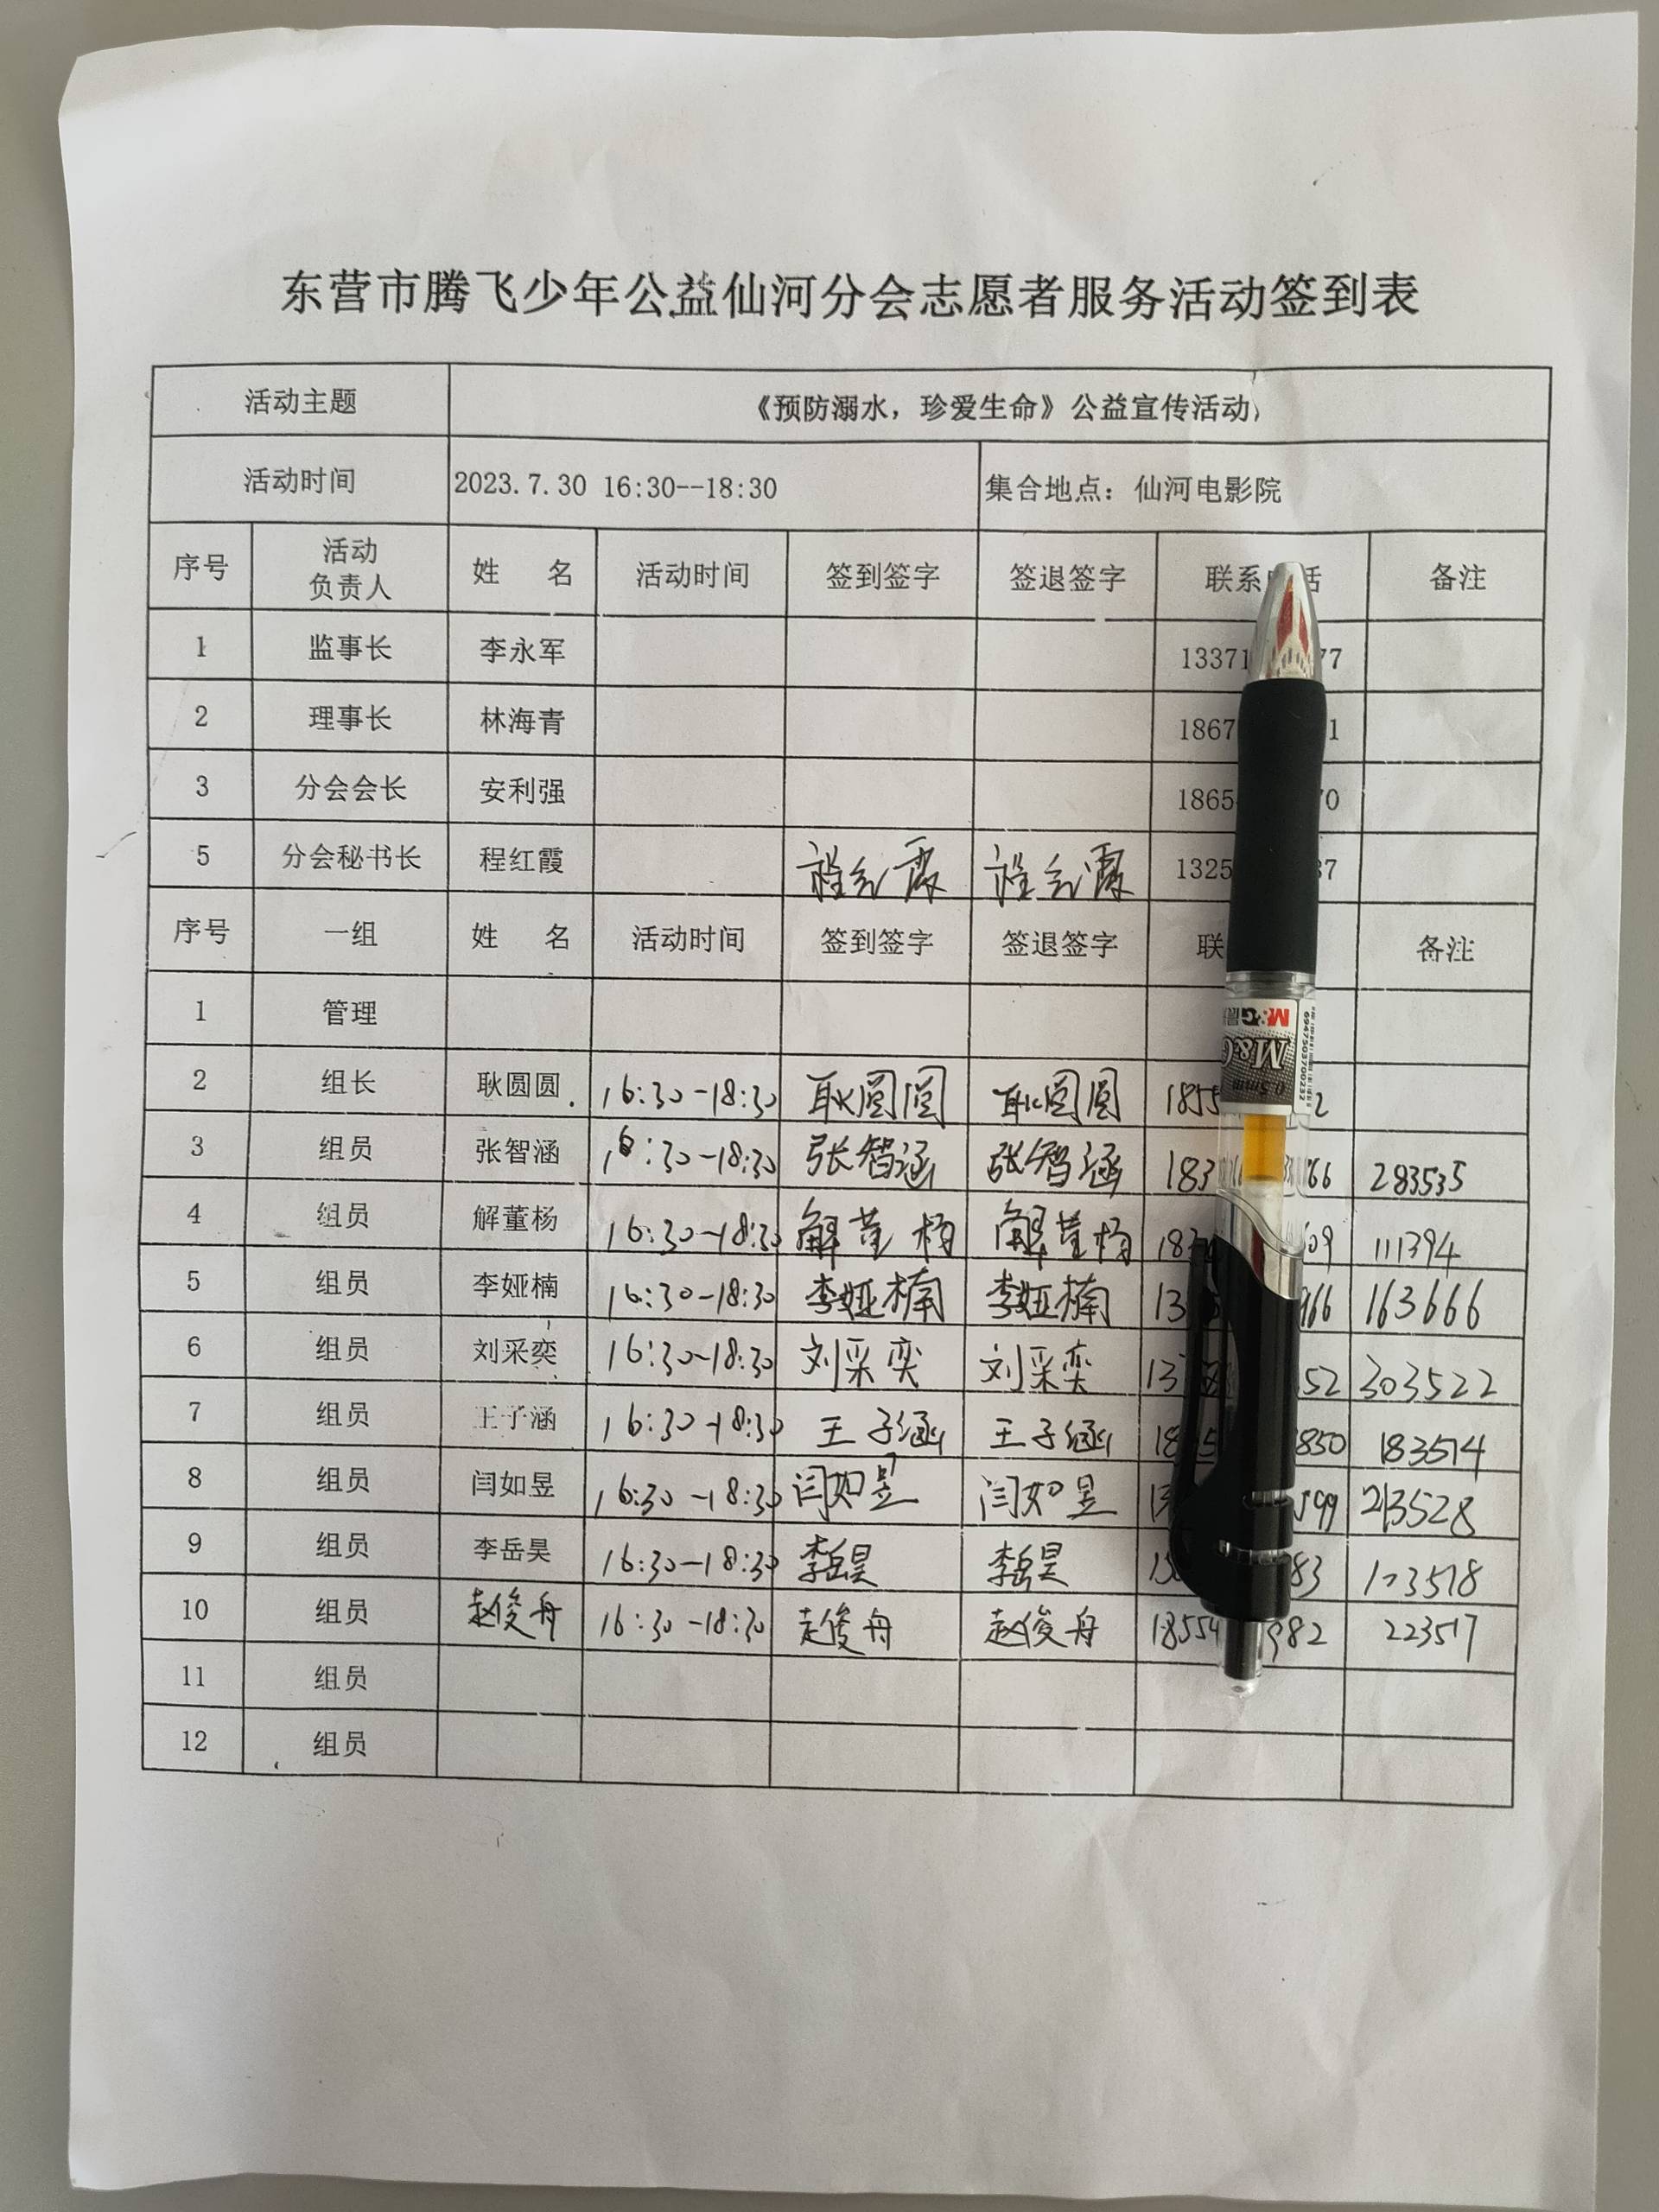 东营市腾飞少年公益仙河分会志愿者服务活动签到表
活动主题 《预防溺水，珍爱生命》公益宣传活动
活动时间 2023.7.30 16:30--18:30 集合地点：仙河电影院
序号 活动负责人 姓 名 活动时间 签到签字 签退签字 联系 话 备注
1 监事长 李永军 13371 77
2 理事长 林海青 1867 1
3 分会会长 安利强 1865 70
5 分会秘书长 程红霞 程红霞 程红霞 1325 37
序号 一组 姓 名 活动时间 签到签字 签退签字 联 备注
1 管理
2 组长 耿圆圆 16:30-18:30 耿圆圆 耿圆圆 1855 2
3 组员 张智涵 16:30-18:30 张智涵 张智涵 183 66 283535
4 组员 解董杨 16:30-18:30 解董杨 解董杨 183 09 111394
5 组员 李娅楠 16:30-18:30 李娅楠 李娅楠 13 966 163666
6 组员 刘采奕 16:30-18:30 刘采奕 刘采奕 13 52 303522
7 组员 王子涵 16:30-18:30 王子涵 王子涵 18 850 183514
8 组员 闫如昱 16:30-18:30 闫如昱 闫如昱 599 213528
9 组员 李岳昊 16:30-18:30 李岳昊 李岳昊 83 123518
10 组员 赵俊舟 16:30-18:30 赵俊舟 赵俊舟 18554 982 223517
11 组员
12 组员
M&G
0.5mm
6947503700232